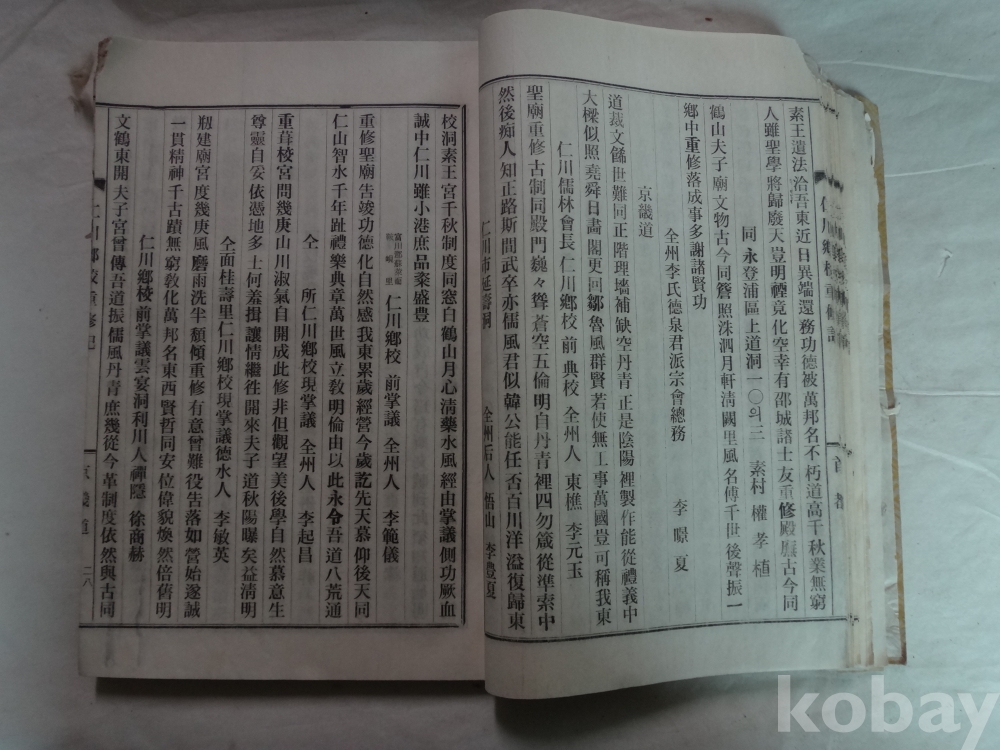 素王遺法洽吾東近日異端還務功德被萬邦名不朽道高千秋業無窮
人雖聖學將歸廢天豈明禋竟化空幸有邵城諸士友重修殿廡古今同
同 永登浦區上道洞一〇의三 素村 權孝植
鶴山夫子廟文物古今同簪照洙泗月軒淸國里風名傳千世後聲振一
鄉中重修落成事多謝諸賢功
全州李氏德泉君派宗會總務 李暻夏
京畿道
道裁文儲世難回正階理墻補缺空丹靑正是陰陽裡製作能從禮義中
大樑似照堯舜日畵閣更回鄒魯風群賢若使無工事萬國豈可稱我東
仁川儒林會長 仁川鄉校 前典校 全州人 東樵 李元玉
聖廟重修古制同殿門巍々聳蒼空五倫明自丹靑裡四勿箴從準索中
然後痴人知正路斯間武卒亦儒風君似韓公能任否百川洋溢復歸東
仁川市 全州后人 悟山 李豊夏
校洞素王宮千秋制度同窓白鶴山月心淸藥水風經由掌議側功厥血
誠中仁川雖小港庶品棄盛豊
仁川鄉校 前掌議 全州人 李範儀
重修聖廟告竣功德化自然感我東累歲經營今歲訖先天慕仰後天同
仁山智水千年趾禮樂典章萬世風立敎明倫由以此永令吾道八荒通
仝 所仁川鄉校現掌議 全州人 李起昌
重葺校宮問幾庚山川淑氣自開成此修非但觀望美後學自然慕意生
尊靈自妥依憑地多士何羞揖讓情繼徃開來夫子道秋陽曝矣益淸明
仝面桂壽里仁川鄉校現掌議德水人 李敏英
刱建廟宮度幾庚風磨雨洗半頹傾重修有意曾難役告落如營始遂誠
一貫精神千古蹟無窮敎化萬邦名東西賢哲同安位偉貌煥然倍舊明
仁川鄉校前掌議雲宴洞利川人禪隱 徐商赫
文鶴東開夫子宮曾傳吾道振儒風丹靑庶幾從今革制度依然與古同
京畿道 二八
kobay